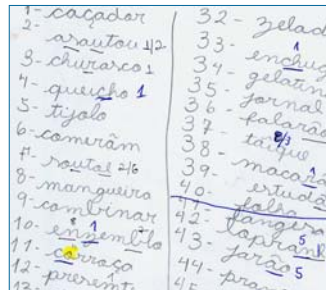 1- caçador
2- asautou 1/2
3- churasco 1
4- queicho 1
5- tijolo
6- comerâm
7- soutas 2/6
8- mangueira
9- combinar
10- enzemblo
11- carroço
12- presemte
32- zelad
33-
34- enchug
35- gelatin
36- jornal
37- falarão
38- tanque 2/3
39- macarã
40- estudã
41- falsa
42- tangera
43- laprank 5
44- jarão 5
45- pran